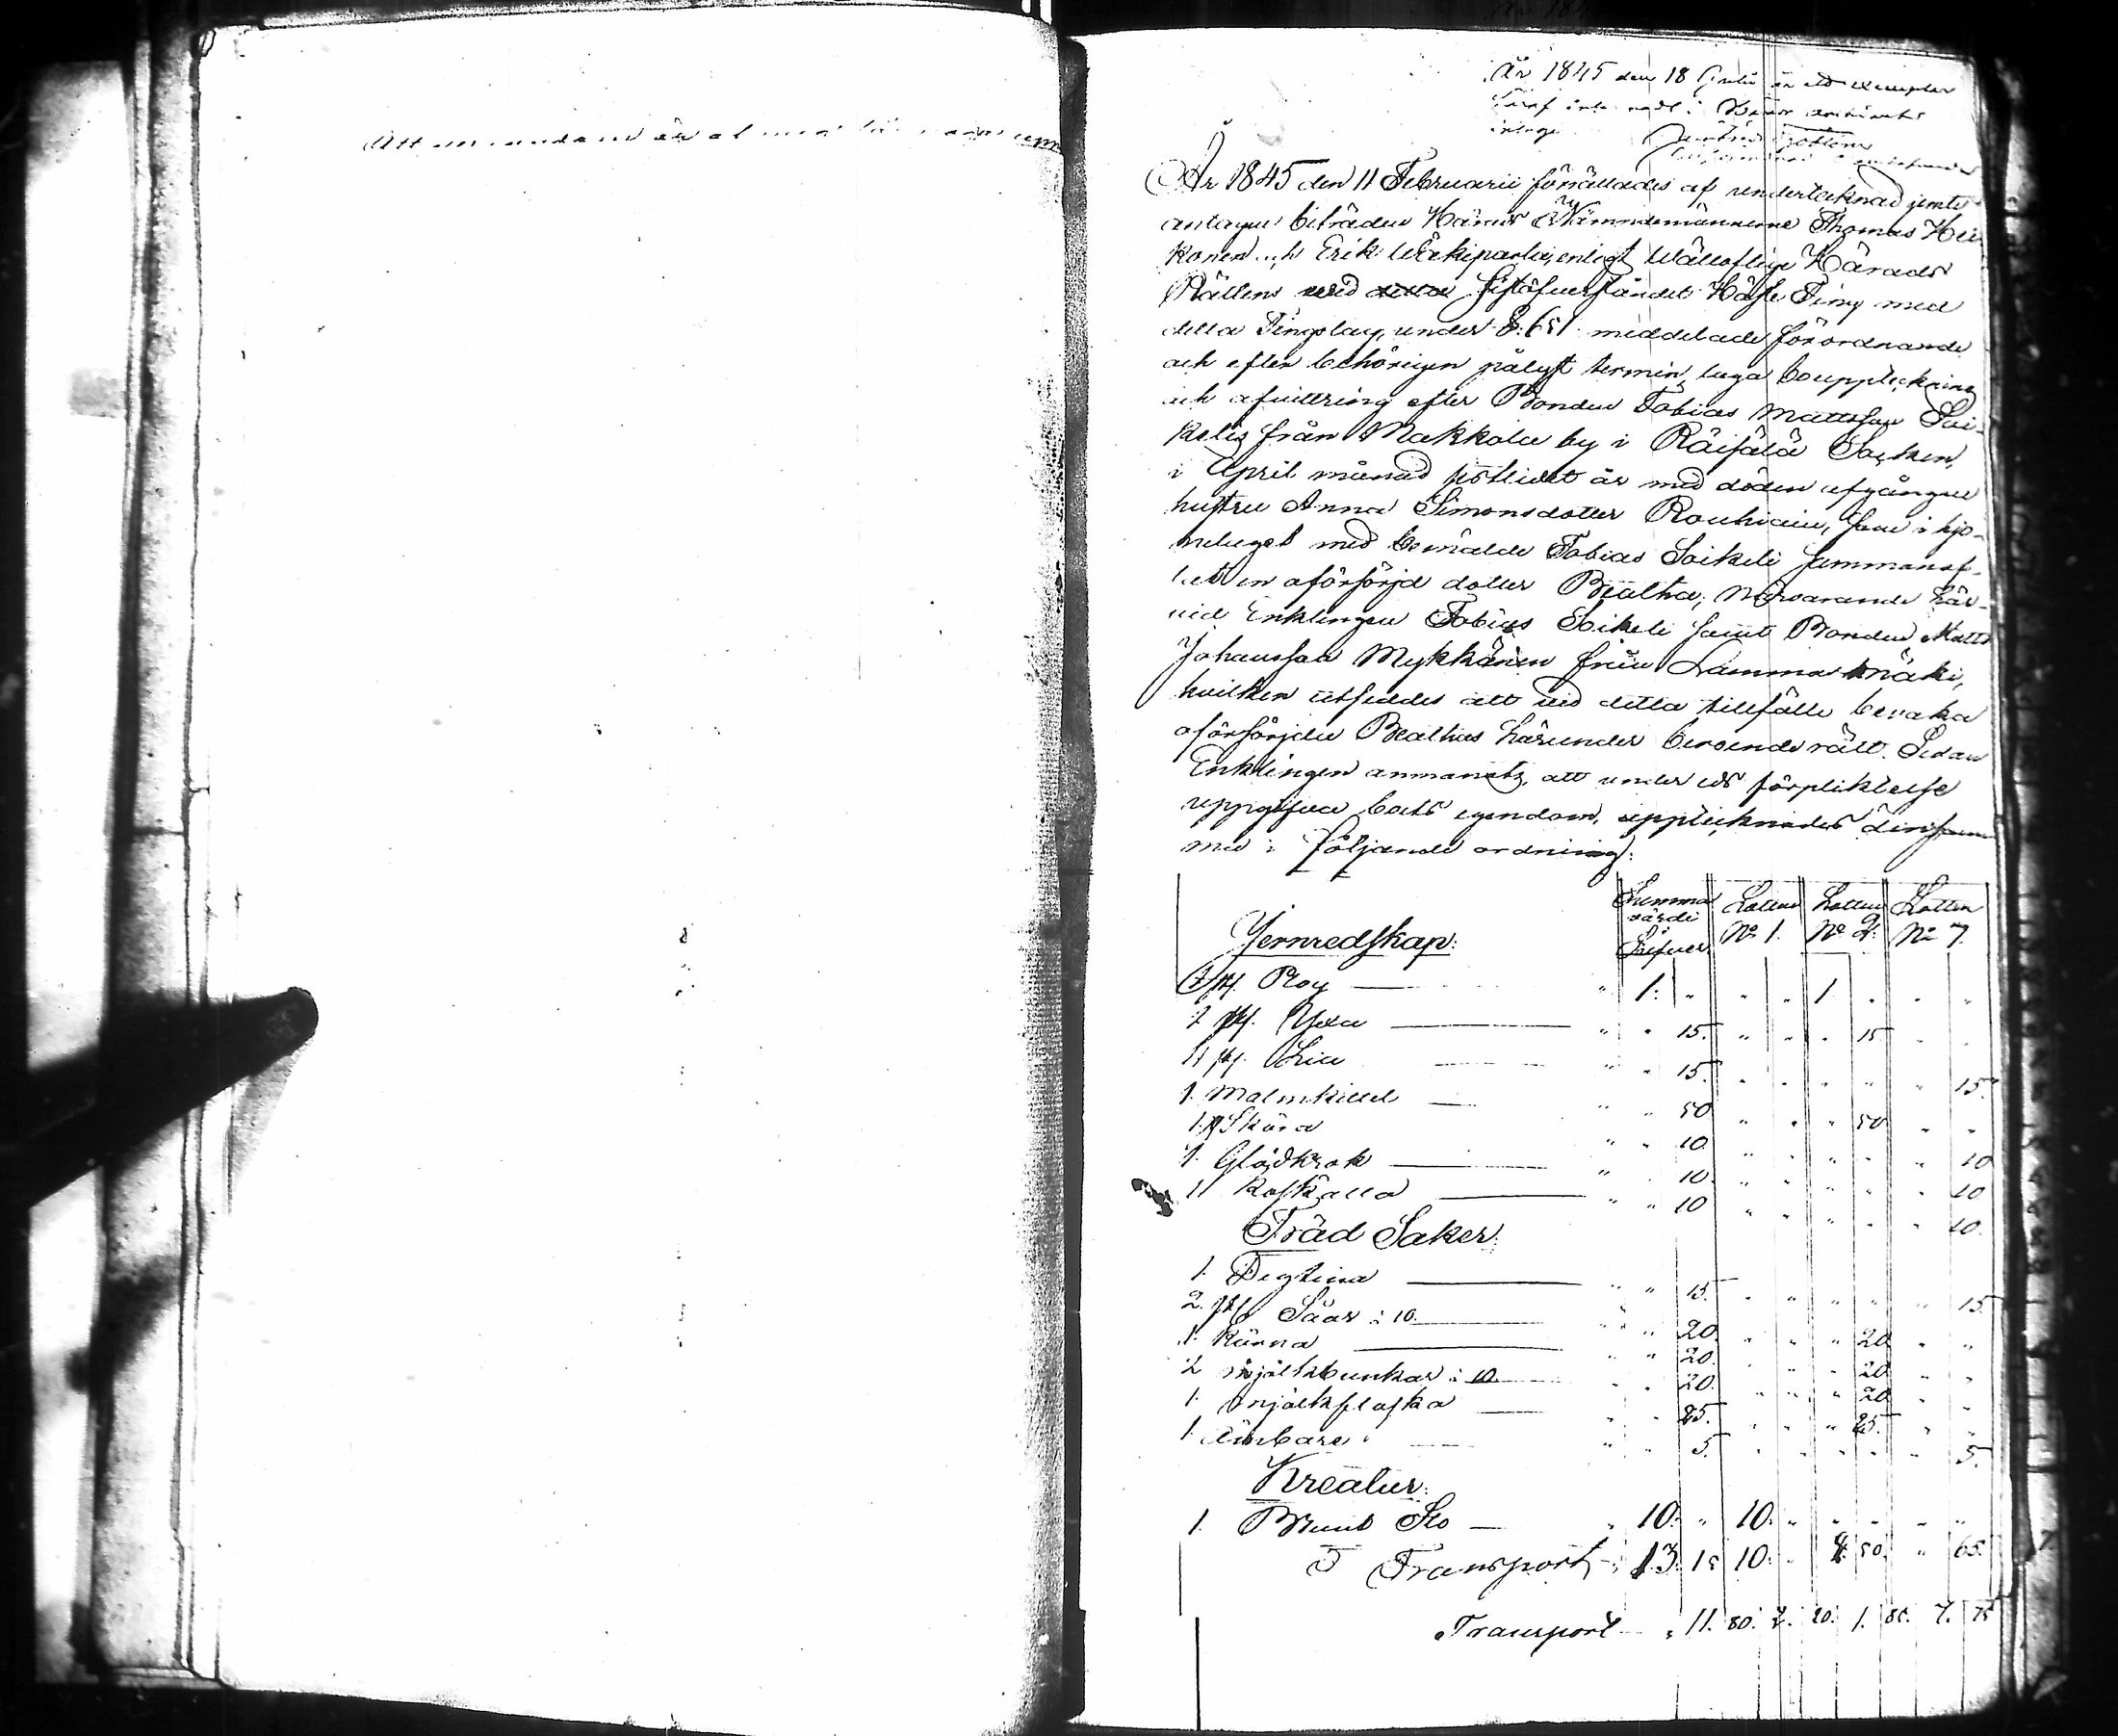 År 1845 den 18 är ett exemplar
häraf
inlagt
År 1845 den 11 Februarii förrättades af undertecknad jemte
antagne biträden Härads Nämndemännerne Thomas Hei-
konen och Erik enligt Wällofliga Härads
Rättens wid sistöfverståndet Höste Ting med
detta Tingslag, under §. 651 meddelade förordnande
och efter behörigen pålyst termin, laga bouppteckning
och afvittring efter Bonden Tobias Mattsson Soi-
kelis från Makkola by i Räisälä Socken,
i April månad sistledet år med döden afgångne
hustru Anna Simonsdotter Rouhiain, som i hjo-
nelaget med bemälde Tobias Soikeli sammanaf-
lat en oförsörjd dotter Beatha; Närvarande här-
vid Enklingen Tobias Soikeli samt Bonden Matts
Johansson Mykkänen från Lammasmäki,
hvilken utseddes att vid detta tillfälle bevaka
oförsörjda Beathas härunder beroende rätt. Sedan
Enklingen anmanats, att under eds förpliktelse
uppgifva boets egendom, upptecknades densam
ma i följande ordning:
Summa värde Silfver Lotten Nº 1. Lotten Nº 2. Lotten Nº 7.
Jernredskap:
1 st. Plog — " 1. " " " 1 " " "
2 st. Yxa — " " 15. " " " 15 " "
1 st. Lia — " " 15. " " " " " 15.
1. Malmkittel — " " 50 " " " 50 " "
1 st Skära " " 10 " " " " " 10
1. Glödkrok — " " 10. " " " " " 10
1 Koskälla — " " 10 " " " " " 10.
Träd Saker:
1. Degtina — " " 15. " " " " " 15.
2. st Såar à 10. — " " 20 " " " 20 " "
1. Kärna — " " 20. " " " 20 " "
2 mjölkbunkar à 10 — " " 20. " " " 20 " "
1. mjölkflaska — " " 25. " " " 25. " "
1. Ämbare — " " 5. " " " " " 5.
Kreatur:
1. Brunt Sto — " 10. " 10. " " " " "
Transport 13. 15 10. " 2. 50. " 65.
Transport 11. 80. 2. 20. 1. 85. 7. 75